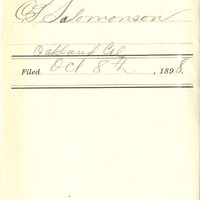 Salomonson
Oakland Cal
Filed Oct 8th, 1898.